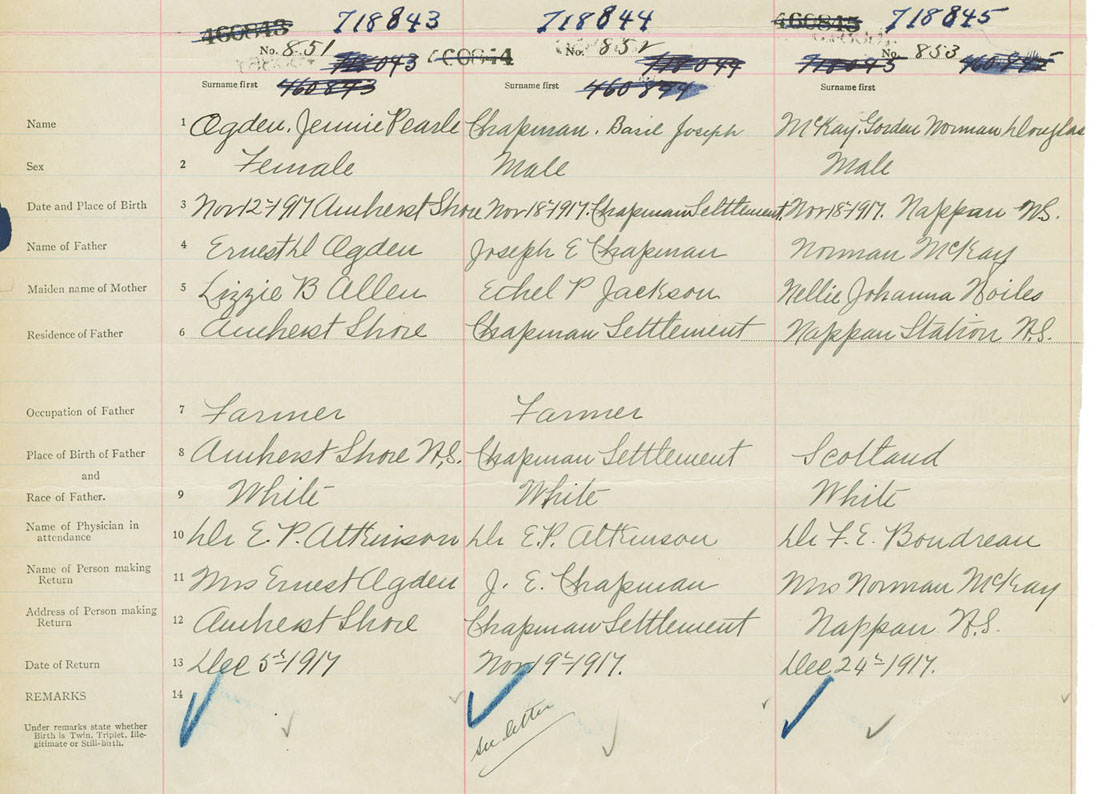 460843 718843 718844 460845 718845
No. 851 718043 460844 No. 852 718044 718045 No. 853 460845
Surname first 460843 Surname first 460844 Surname first
Name 1 Ogden. Jennie Pearle Chapman. Basil Joseph McKay. Gorden Norman Douglas
Sex 2 Female Male Male
Date and Place of Birth 3 Nov 12th 1917 Amherst Shore Nov 18th 1917. Chapman Settlement. Nov 18th 1917. Nappan N.S.
Name of Father 4 Ernest Ogden Joseph E Chapman Norman McKay
Maiden name of Mother 5 Lizzie B Allen Ethel P Jackson Nellie Johanna Noiles
Residence of Father 6 Amherst Shore Chapman Settlement Nappan Station N.S.
Occupation of Father 7 Farmer Farmer
Place of Birth of Father 8 Amherst Shore N.S. Chapman Settlement Scotland
and
Race of Father. 9 White White White
Name of Physician in
attendance 10 Dr E. P. Atkinson Dr E.P. Atkinson Dr F. E. Boudreau
Name of Person making
Return 11 Mrs Ernest Ogden J. E. Chapman Mrs Norman McKay
Address of Person making
Return 12 Amherst Shore Chapman Settlement Nappan N.S.
Date of Return 13 Dec 5th 1917 Nov 19th 1917. Dec 24th 1917.
REMARKS 14
Under remarks state whether
Birth is Twin, Triplet, Ille-
gitimate or Still-birth.
see letter